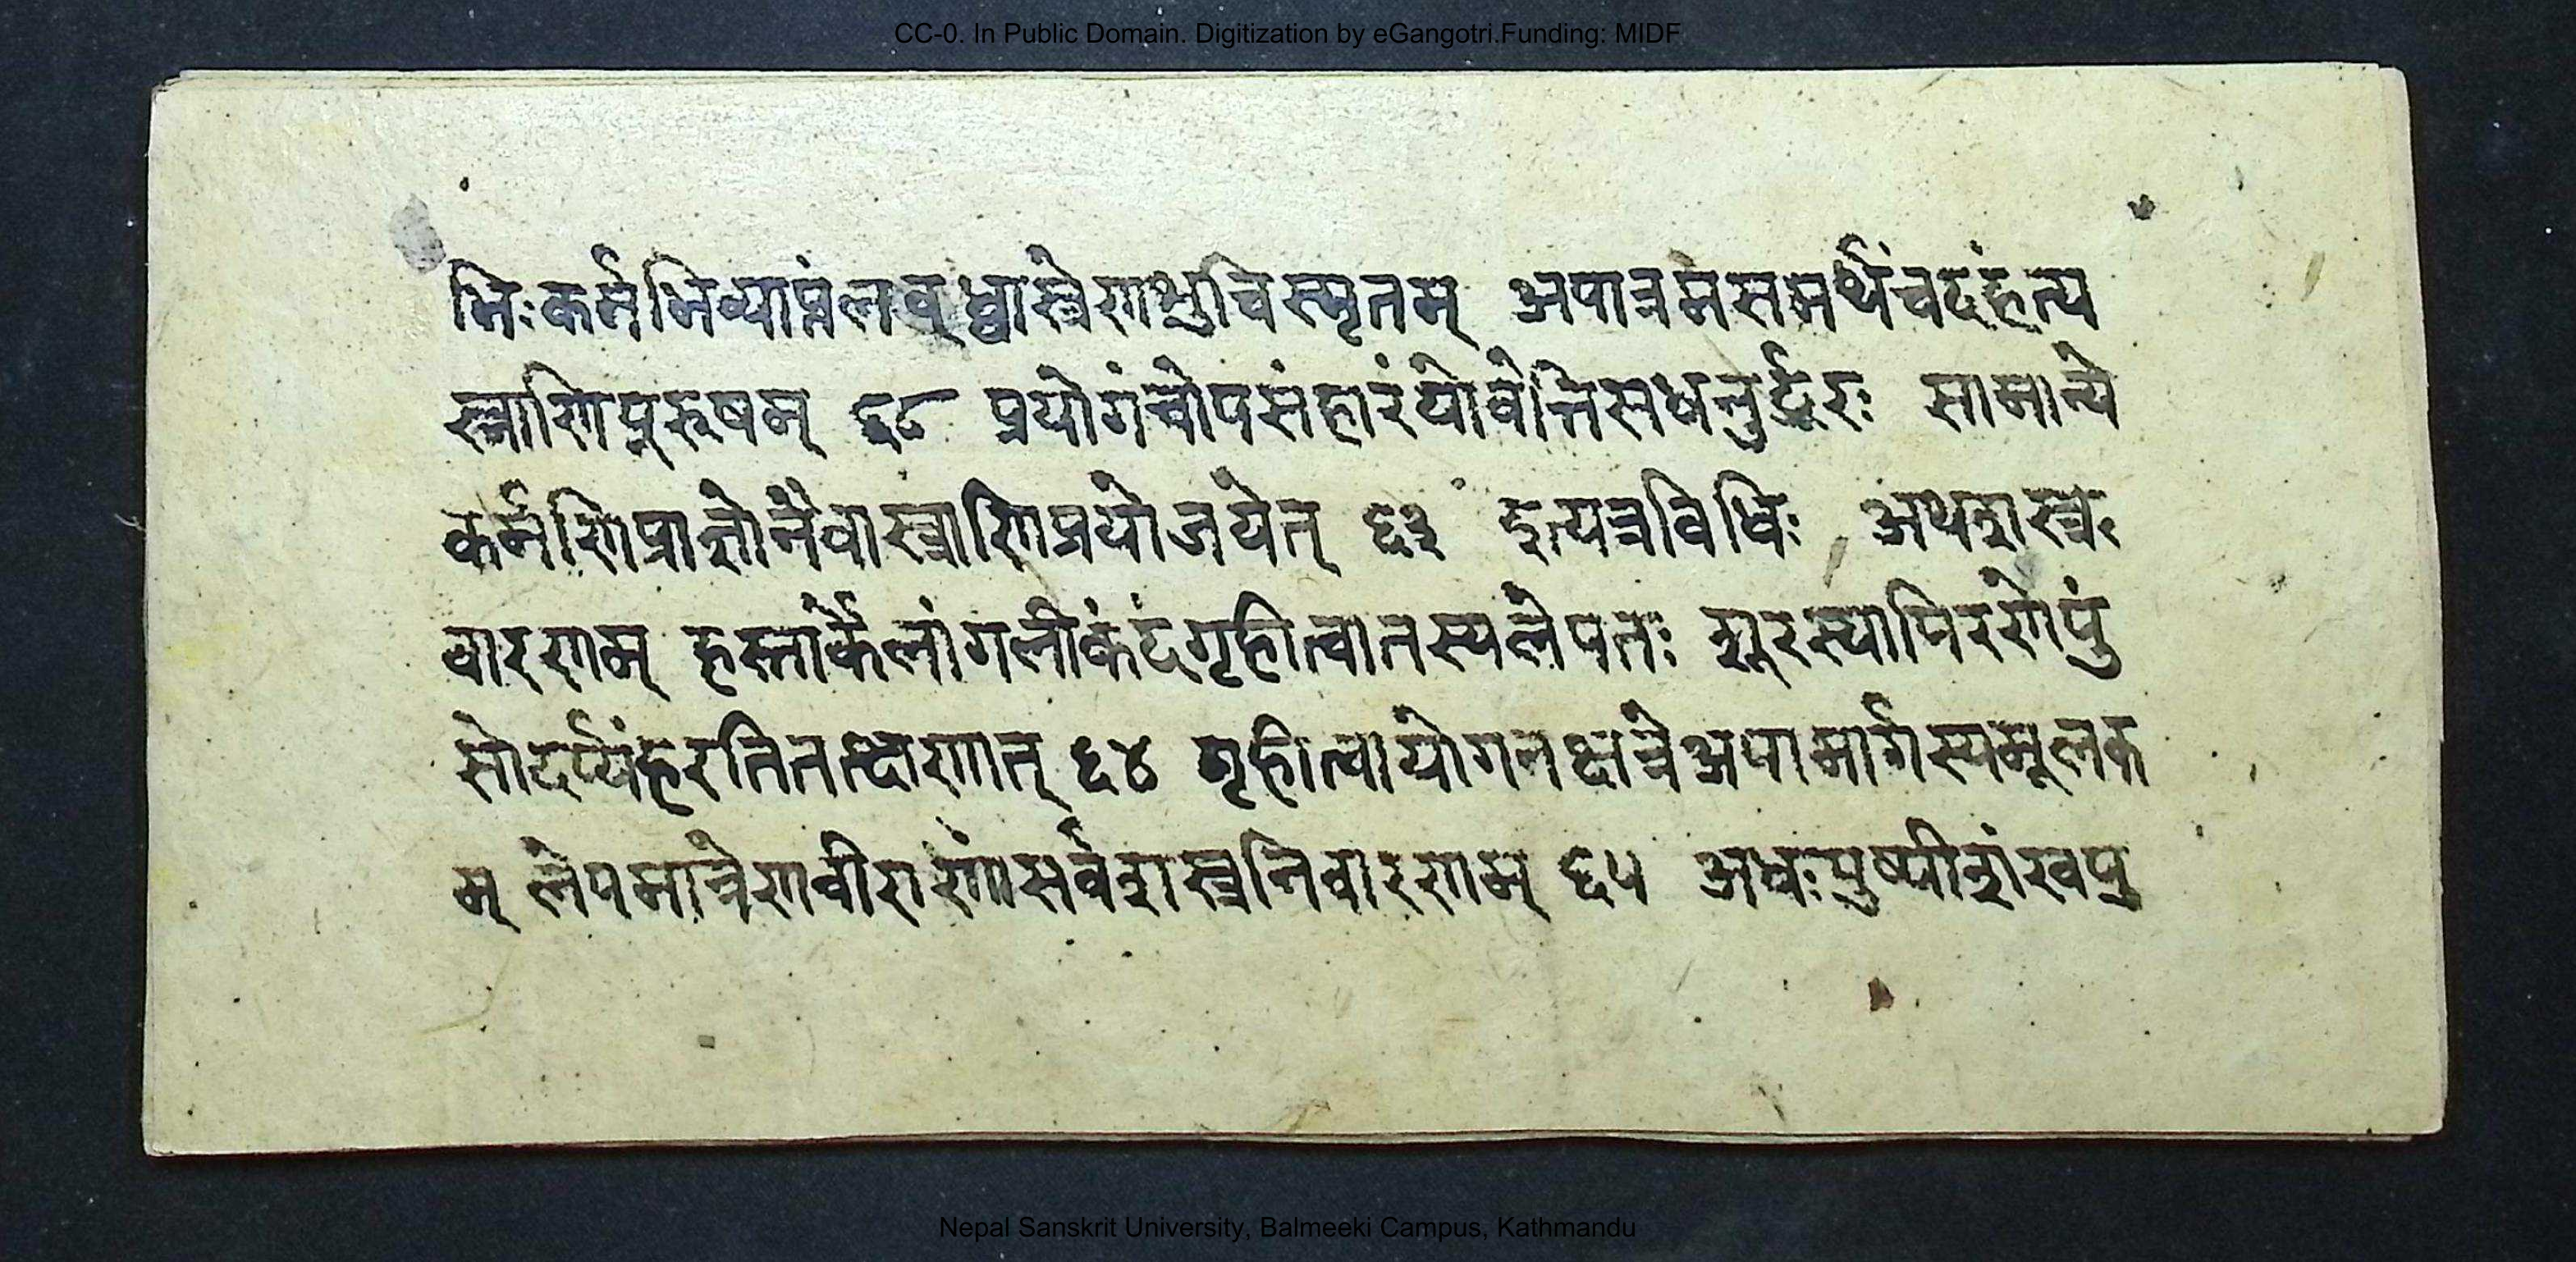 CC-0. In Public Domain. Digitization by eGangotri.Funding: MIDF
भिःकर्मभिव्याप्नंलवध्वास्त्रेणाशुचिस्मृतम् अपात्रमसमर्थंचदहंत्य
स्त्राणिपूरुषम् ६८ प्रयोगंचोपसंहारंयोवेत्तिसधनुर्द्धरः सामान्ये
कर्मणिप्राज्ञोनैवास्त्राणिप्रयोजयेत् ६३ इत्यस्त्रविधिः अथशस्त्र
वारणम् हस्तार्केलांगलीकंदंगृहीत्वातस्यलेपतः शूरस्यापिरणेपुं
सोदर्प्यंहरतितत्क्षणात् ६४ गृहीत्वायोगनक्षत्रेअपामार्गस्यमूलक
म् लेपमात्रेणवीराणांसर्वशस्त्रनिवारणम् ६५ अधःपुष्पीशंखपु
Nepal Sanskrit University, Balmeeki Campus, Kathmandu